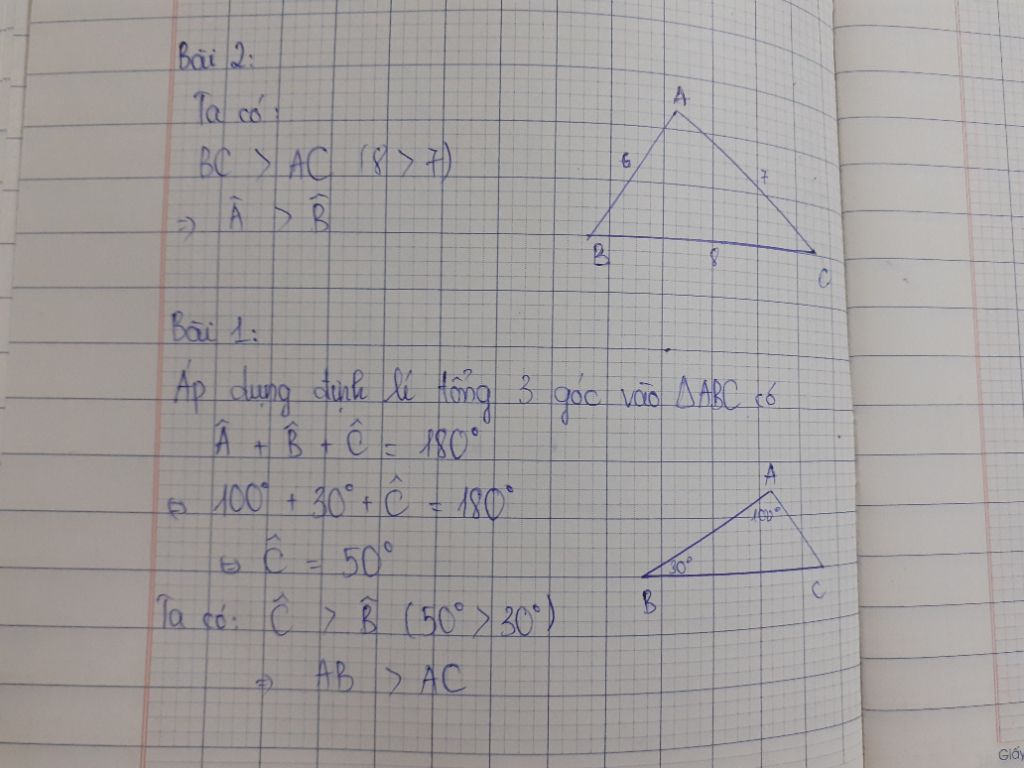 Bài 2:
Ta có:
BC > AC (8 > 7)
=> Â > B̂
A
6
7
B
8
C
Bài 1:
Áp dụng định lí tổng 3 góc vào ΔABC có
Â + B̂ + Ĉ = 180°
⇔ 100° + 30° + Ĉ = 180°
⇔ Ĉ = 50°
Ta có: Ĉ > B̂ (50° > 30°)
=> AB > AC
A
100°
30°
B
C
Giấy